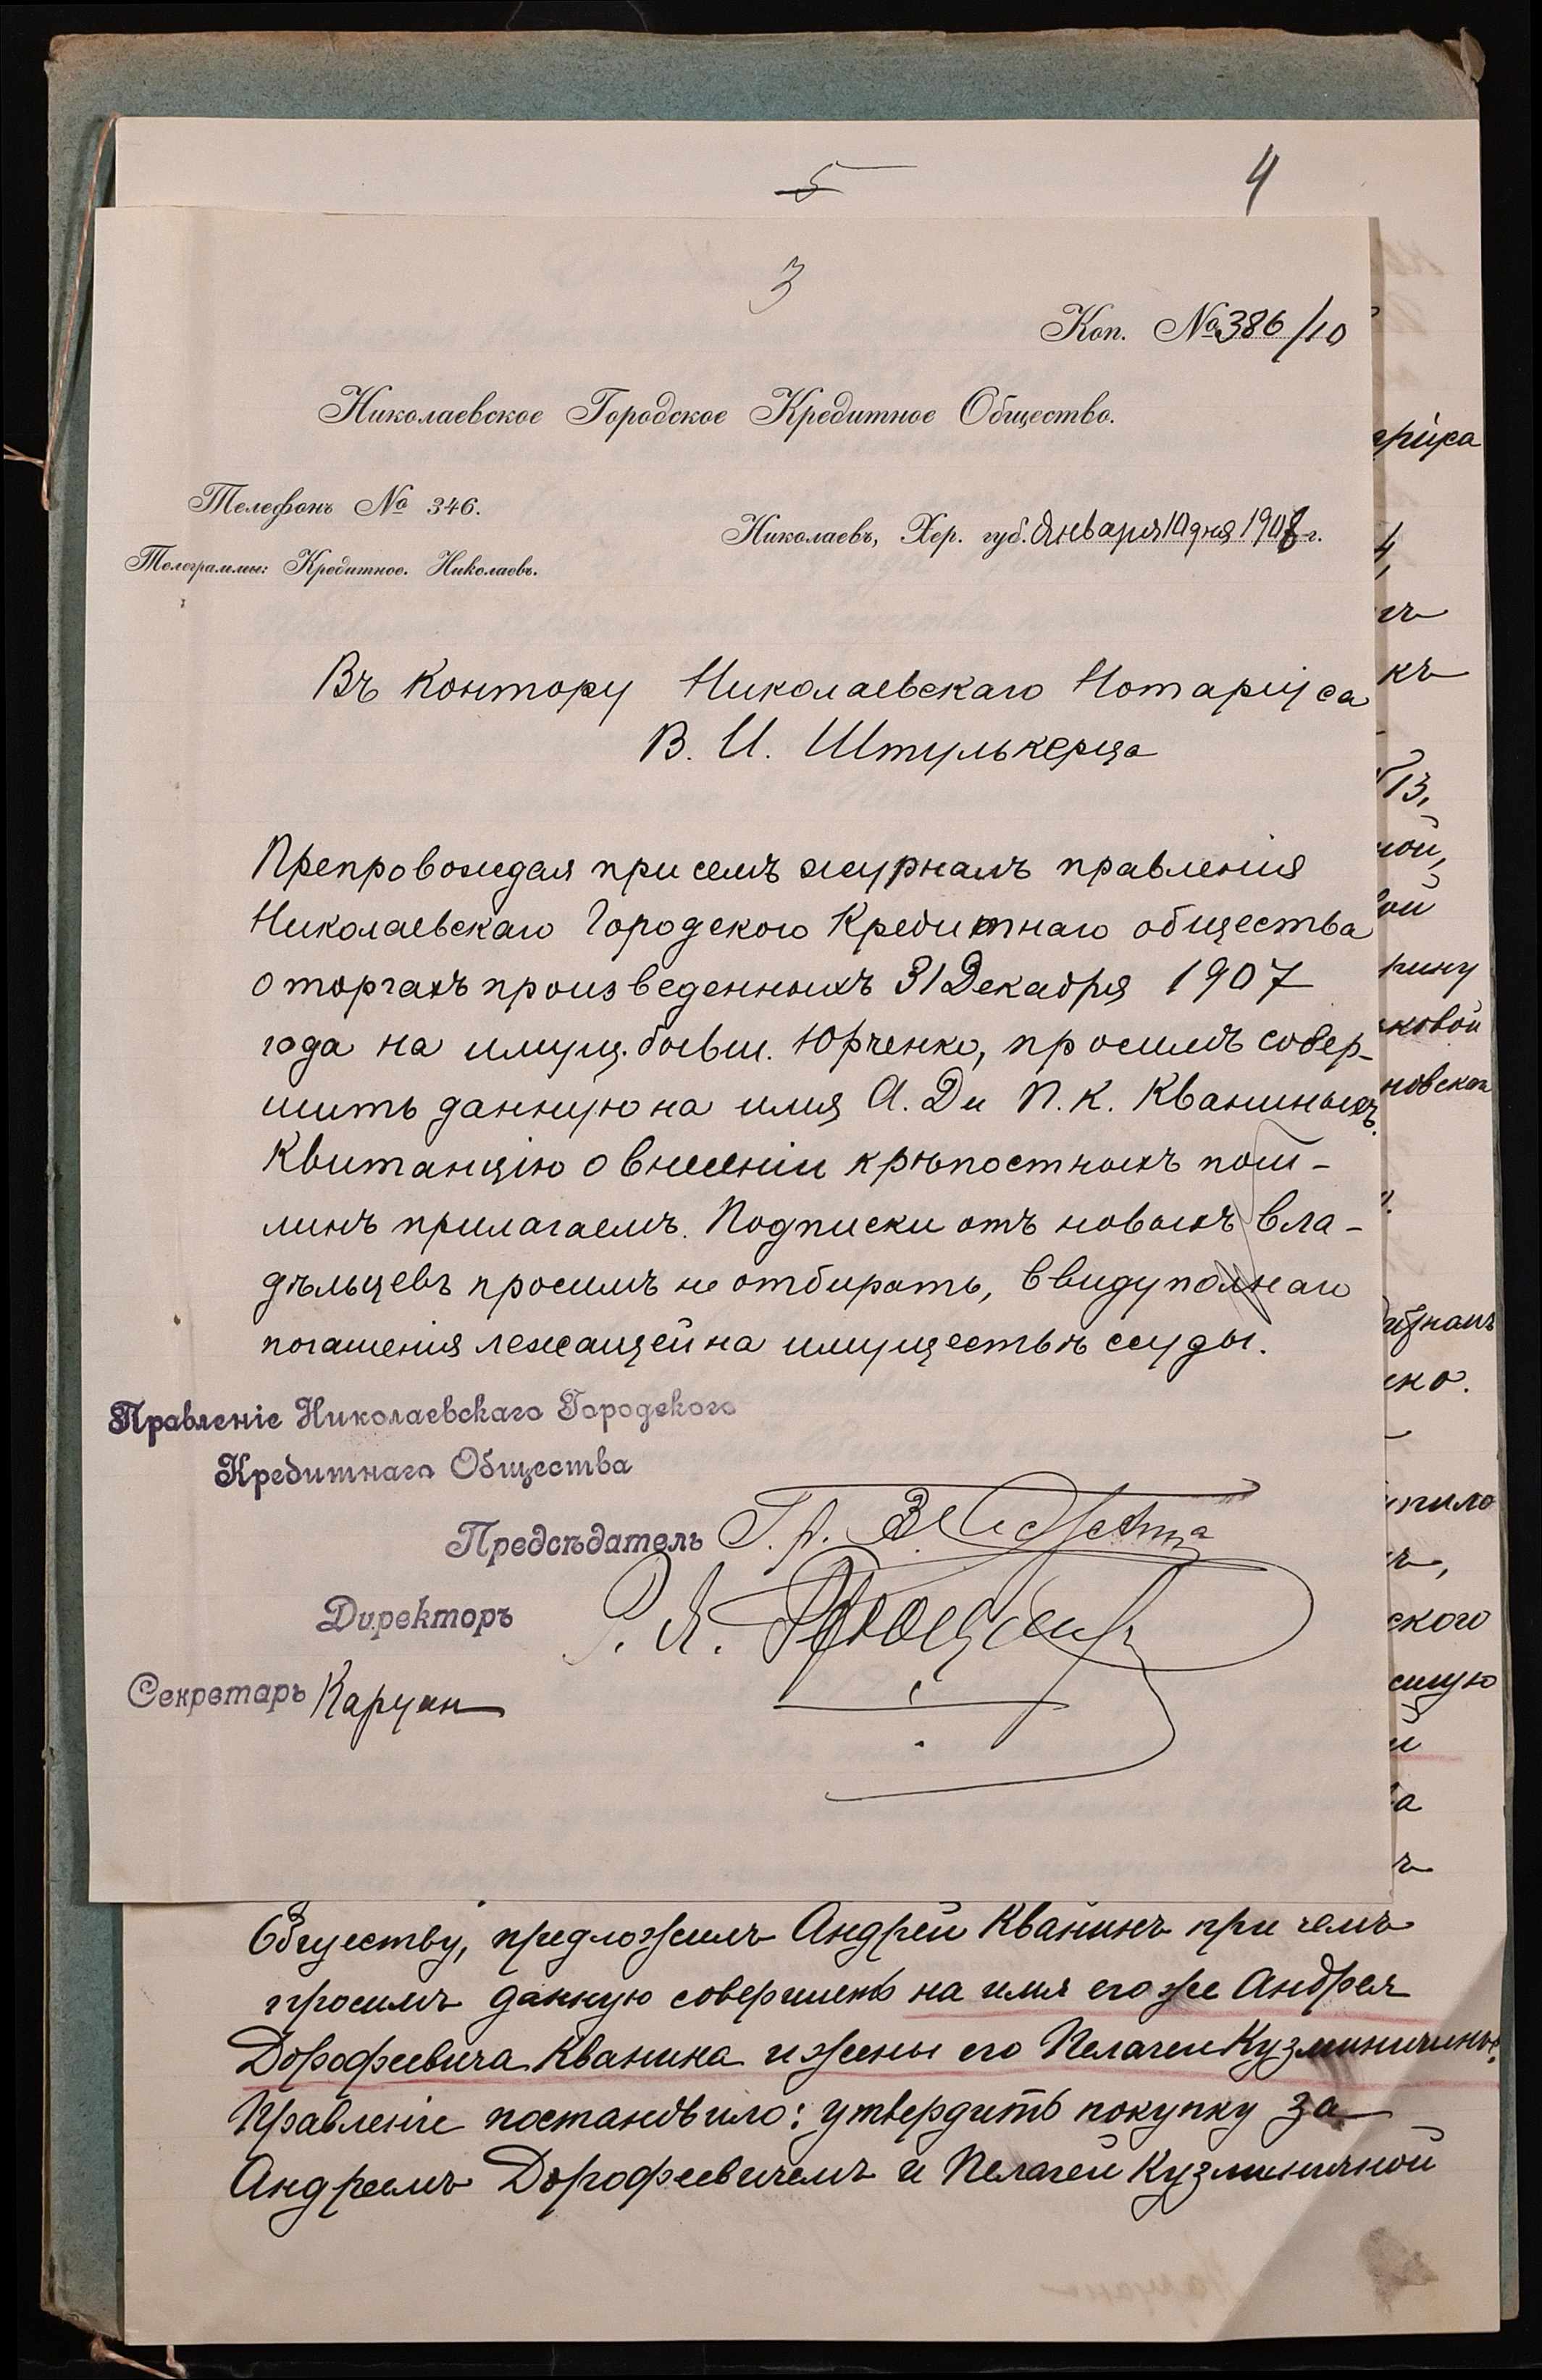 5
4
3
Коп. № 386/10
Николаевское Городское Кредитное Общество.
Телефонъ № 346.
Николаевъ, Хер. губ. Января 10 дня 1908 г.
Телеграммы: Кредитное. Николаевъ.
Въ контору Николаевскаго Нотаріуса
В. И. Штулькерца
Препровождая при семъ журналъ правленія
Николаевскаго Городского Кредитнаго общества
о торгахъ произведенныхъ 31 Декабря 1907
года на имущ. бывш. Юрченко, просимъ совер-
шить данную на имя А. Д. и П. К. Кваниныхъ.
Квитанцію о внесеніи крѣпостныхъ пош-
линъ прилагаемъ. Подписки отъ новыхъ вла-
дѣльцевъ просимъ не отбирать, ввиду полнаго
погашенія лежащей на имуществѣ ссуды.
Правленіе Николаевскаго Городского
Кредитнаго Общества
Предсѣдатель
Директоръ
Секретарь
Обществу, предложилъ Андрей Кванинъ при чемъ
просилъ данную совершить на имя его же Андрея
Дорофеевича Кванина и жены его Пелагеи Кузминичины.
Правленіе постановило: утвердить покупку за
Андреемъ Дорофеевичемъ и Пелагеи Кузминичной